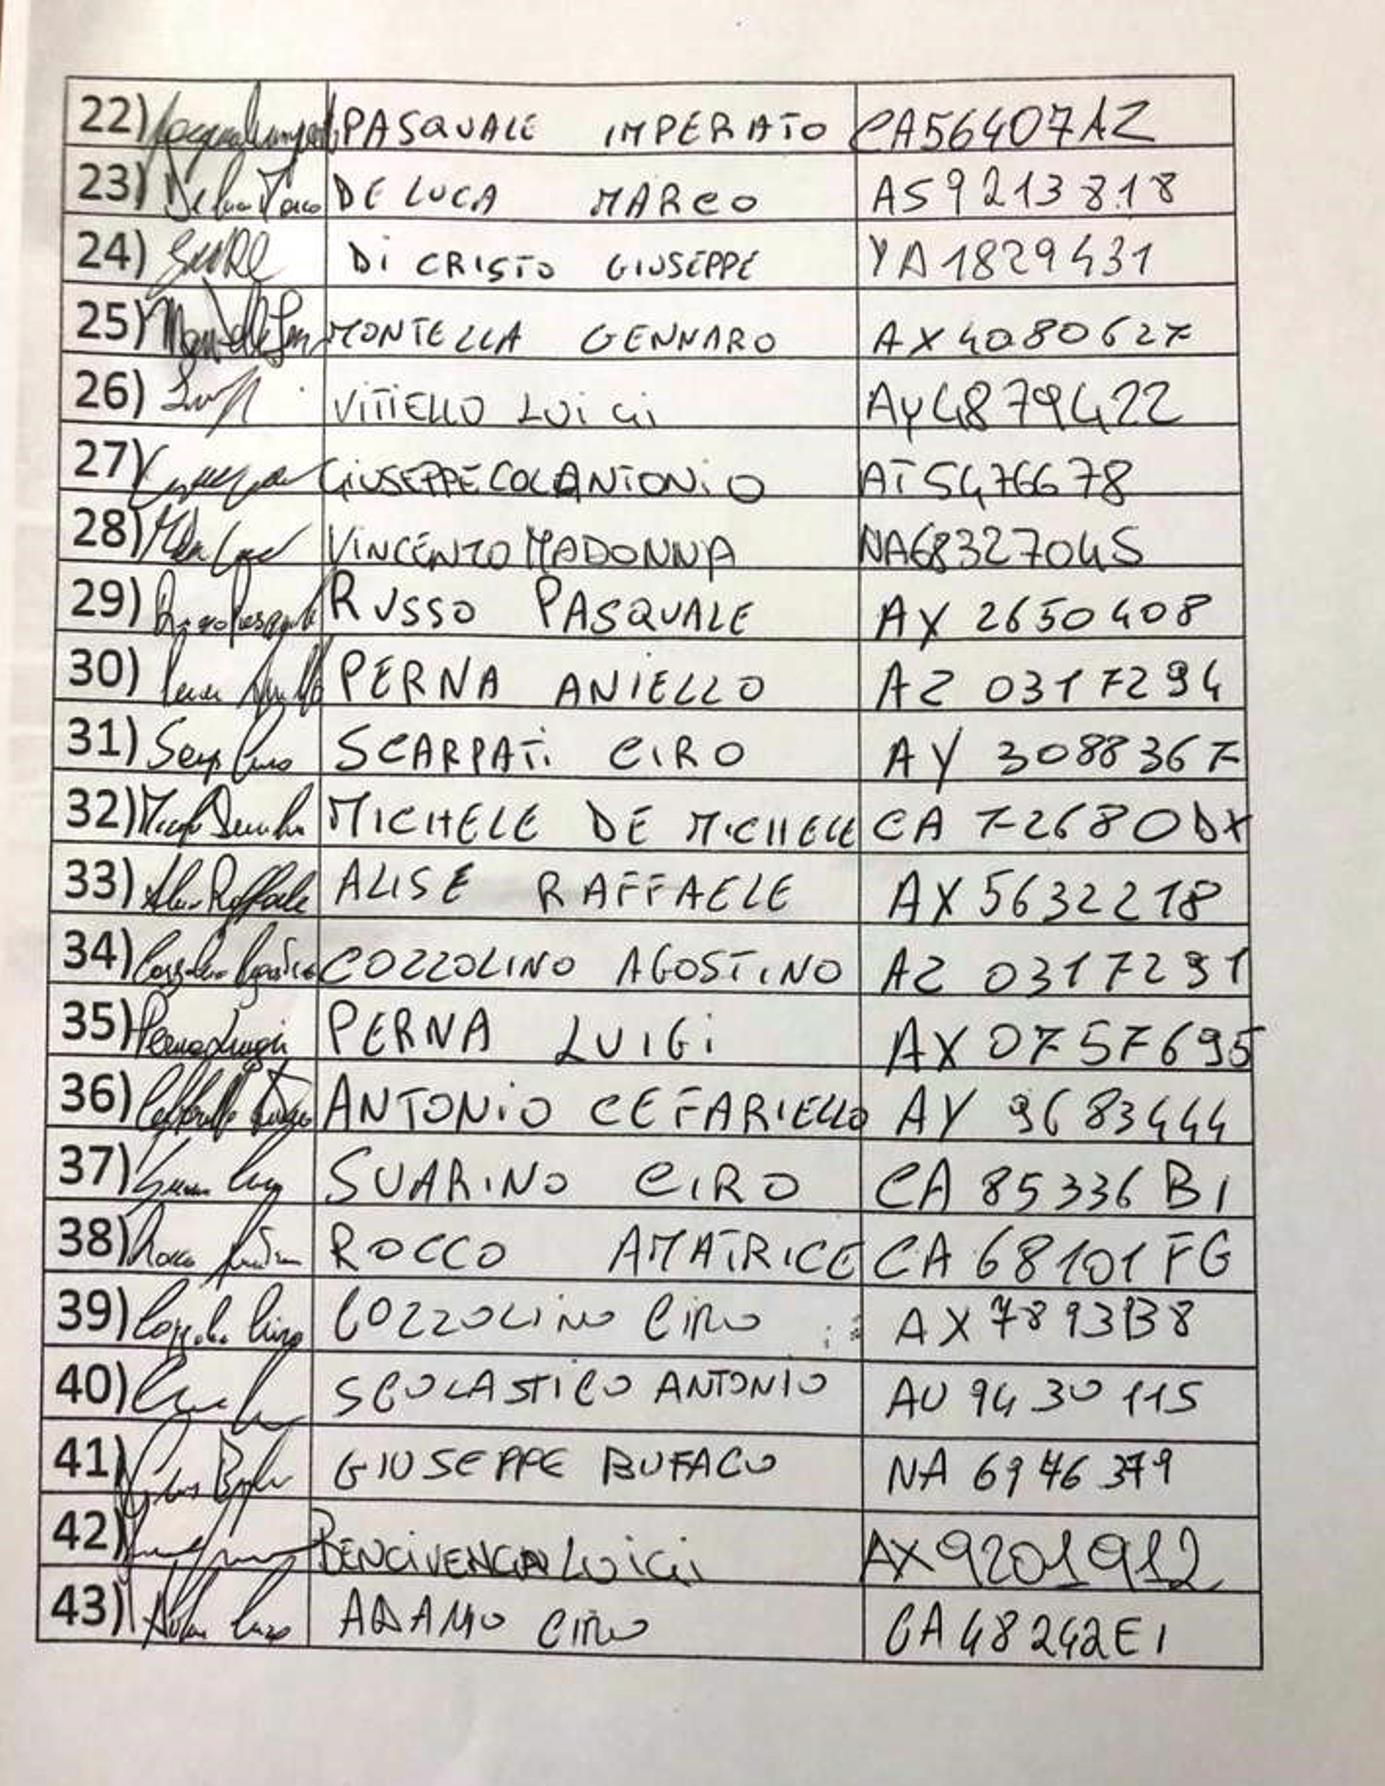 22) PASQUALE IMPERATO CA56407AZ
23) De Luca Marco DE LUCA MARCO AS9213818
24) DI CRISTO GIUSEPPE YA1829431
25) MONTELLA GENNARO AX4080627
26) VITIELLO LUIGI AY4879422
27) GIUSEPPE COLANTONIO AT5476678
28) VINCENZO MADONNA NA6832704S
29) Russo Pasquale RUSSO PASQUALE AX 2650408
30) PERNA ANIELLO AZ 0317294
31) SCARPATI CIRO AY 3088367
32) MICHELE DE MICHELE CA 72680DX
33) Alise Raffaele ALISE RAFFAELE AX 5632218
34) Cozzolino Agostino COZZOLINO AGOSTINO AZ 0317291
35) Perna Luigi PERNA LUIGI AX 0757695
36) ANTONIO CEFARIELLO AY 9683444
37) SUARINO CIRO CA 85336BI
38) ROCCO AMATRICE CA 68101FG
39) Cozzolino Ciro COZZOLINO CIRO AX 7893B8
40) SCOLASTICO ANTONIO AU 9430115
41) GIUSEPPE BUFACO NA 6946379
42) BENCIVENGA LUIGI AX9201912
43) ADAMO CIRO CA48242EI